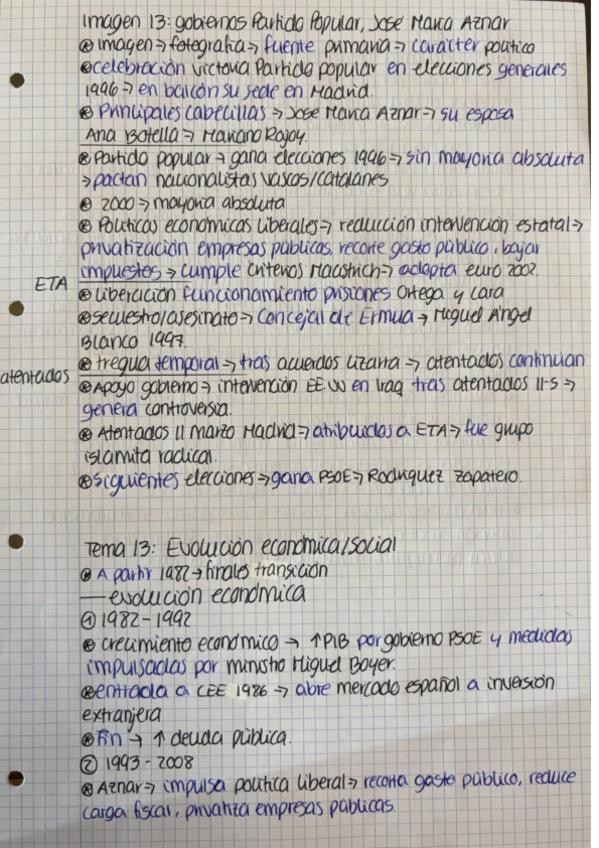 Imagen 13: gobiernos Partido Popular, Jose Maria Aznar
⊛ imagen → fotografia → fuente primaria → carácter político
⊛ celebración victoria Partido popular en elecciones generales
1996 → en balcón su sede en Madrid.
⊛ Principales cabecillas → Jose Maria Aznar → su esposa
Ana Botella → Mariano Rajoy.
⊛ Partido popular → gana elecciones 1996 → sin mayoria absoluta
→ pactan nacionalistas vascos/catalanes
⊛ 2000 → mayoria absoluta
⊛ Politicas economicas liberales → reducción intervención estatal →
privatización empresas públicas, recorte gasto público, bajar
impuestos → cumple criterios Maastrich → adopta euro 2002.
ETA ⊛ liberación funcionamiento prisiones Ortega y Lara
⊛ secuestro/asesinato → Concejal de Ermua → Miguel Angel
Blanco 1997.
atentados ⊛ tregua temporal → tras acuerdos lizarra → atentados continuan
⊛ Apoyo gobierno → intervención EE.UU en Iraq tras atentados 11-S →
genera controversia.
⊛ Atentados 11 marzo Madrid → atribuidos a ETA → fue grupo
islamita radical.
⊛ siguientes elecciones → gana PSOE → Rodriguez Zapatero.
Tema 13: Evolución económica/social
⊛ A partir 1982 → finales transición
— evolución económica
① 1982-1992
⊛ crecimiento económico → ↑ PIB por gobierno PSOE y medidas
impulsadas por ministro Miguel Boyer.
⊛ entrada a CEE 1986 → abre mercado español a inversión
extranjera
⊛ Fin → ↑ deuda pública.
② 1993-2008
⊛ Aznar → impulsa politica liberal → recorta gasto público, reduce
carga fiscal, privatiza empresas públicas.